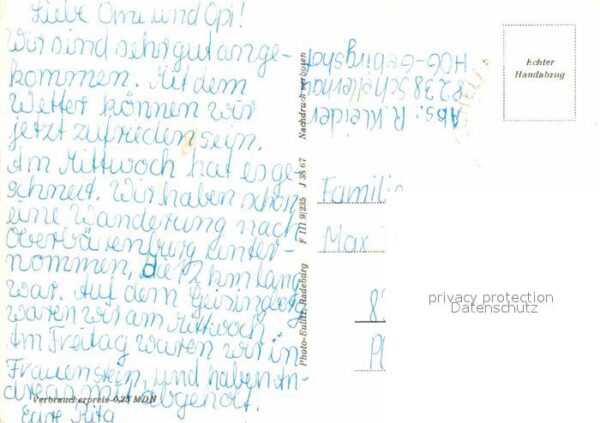 Liebe Omi und Opi!
Wir sind sehr gut ange-
kommen. Mit dem
Wetter können wir
jetzt zufrieden sein.
Am Mittwoch hat es ge-
schneit. Wir haben schon
eine Wanderung nach
Oberbärenburg unter-
nommen, die 12 km lang
war. Auf dem Geisingberg
waren wir am Mittwoch
Am Freitag waren wir in
Frauenstein, und haben An-
dreas mit abgeholt.
Eure Rita
Verbraucherpreis 0,25 MDN
Photo-Eulitz, Radeburg F III 9/235 J 38 67 Nachdruck verboten
Abs: R. Kleider
8238 Schellerhau
HOG-Gebirgshof
Echter
Handabzug
Famili
Max
privacy protection
Datenschutz